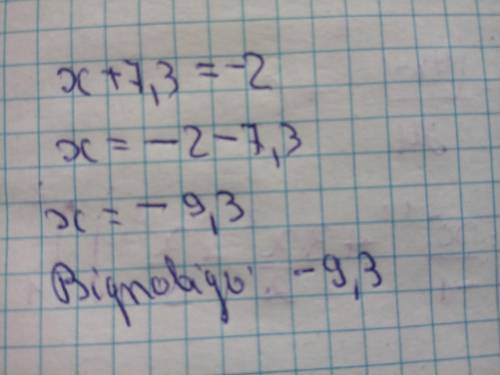 x + 7,3 = -2
x = - 2 - 7,3
x = - 9,3
Відповідь: -9,3